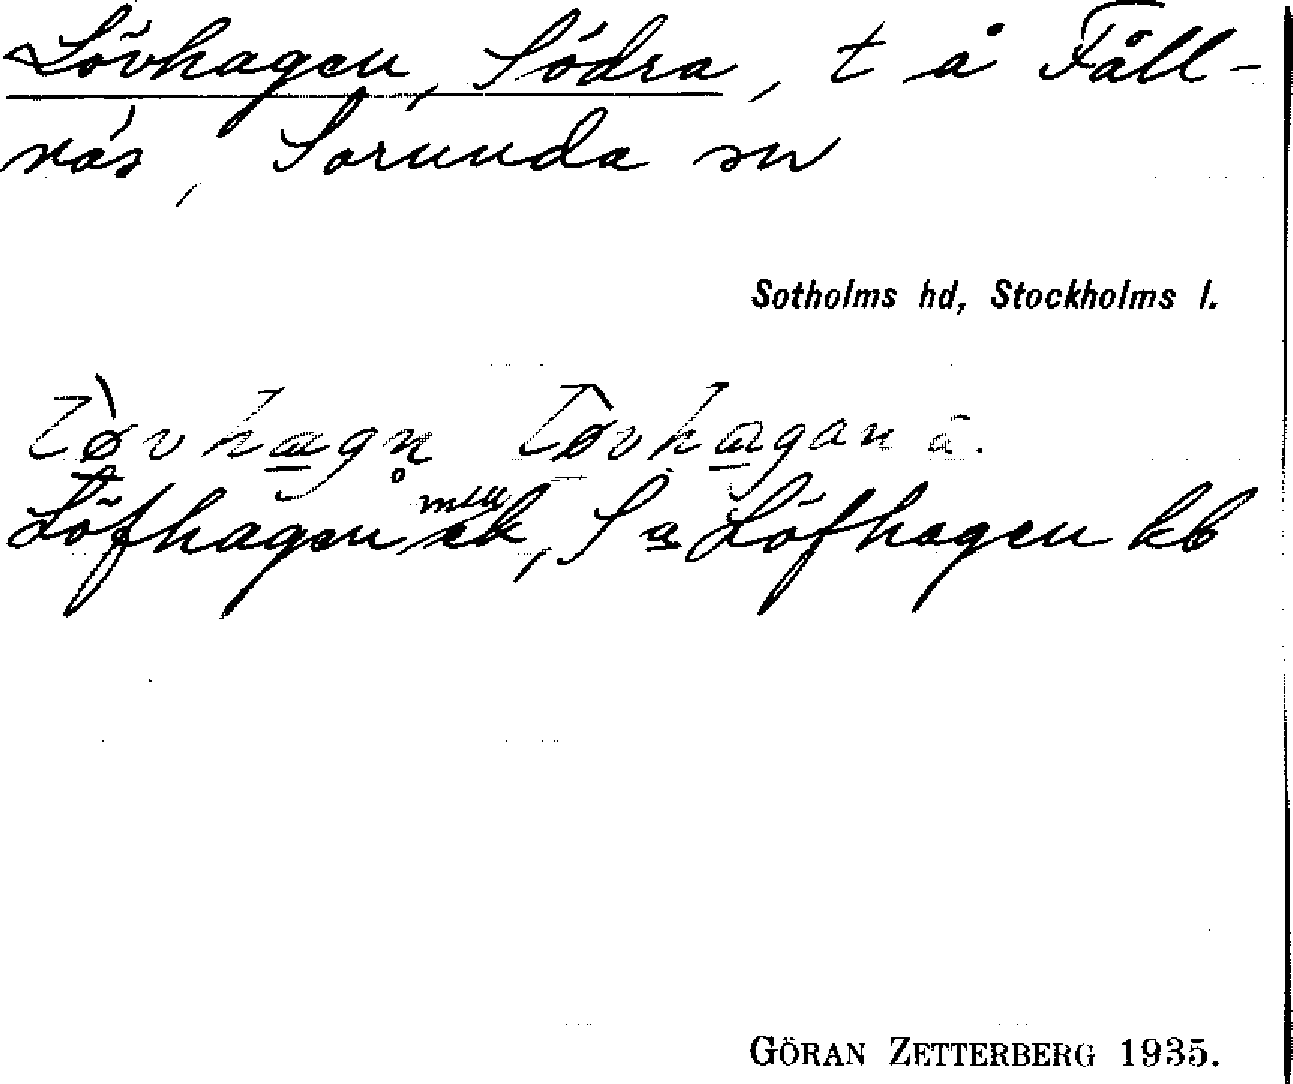 Lövhagen, Södra, t å Fäll-
näs, Sorunda sn
Sotholms hd, Stockholms l.
Löfhagen ek, S a Löfhagen kb
GÖRAN ZETTERBERG 1935.